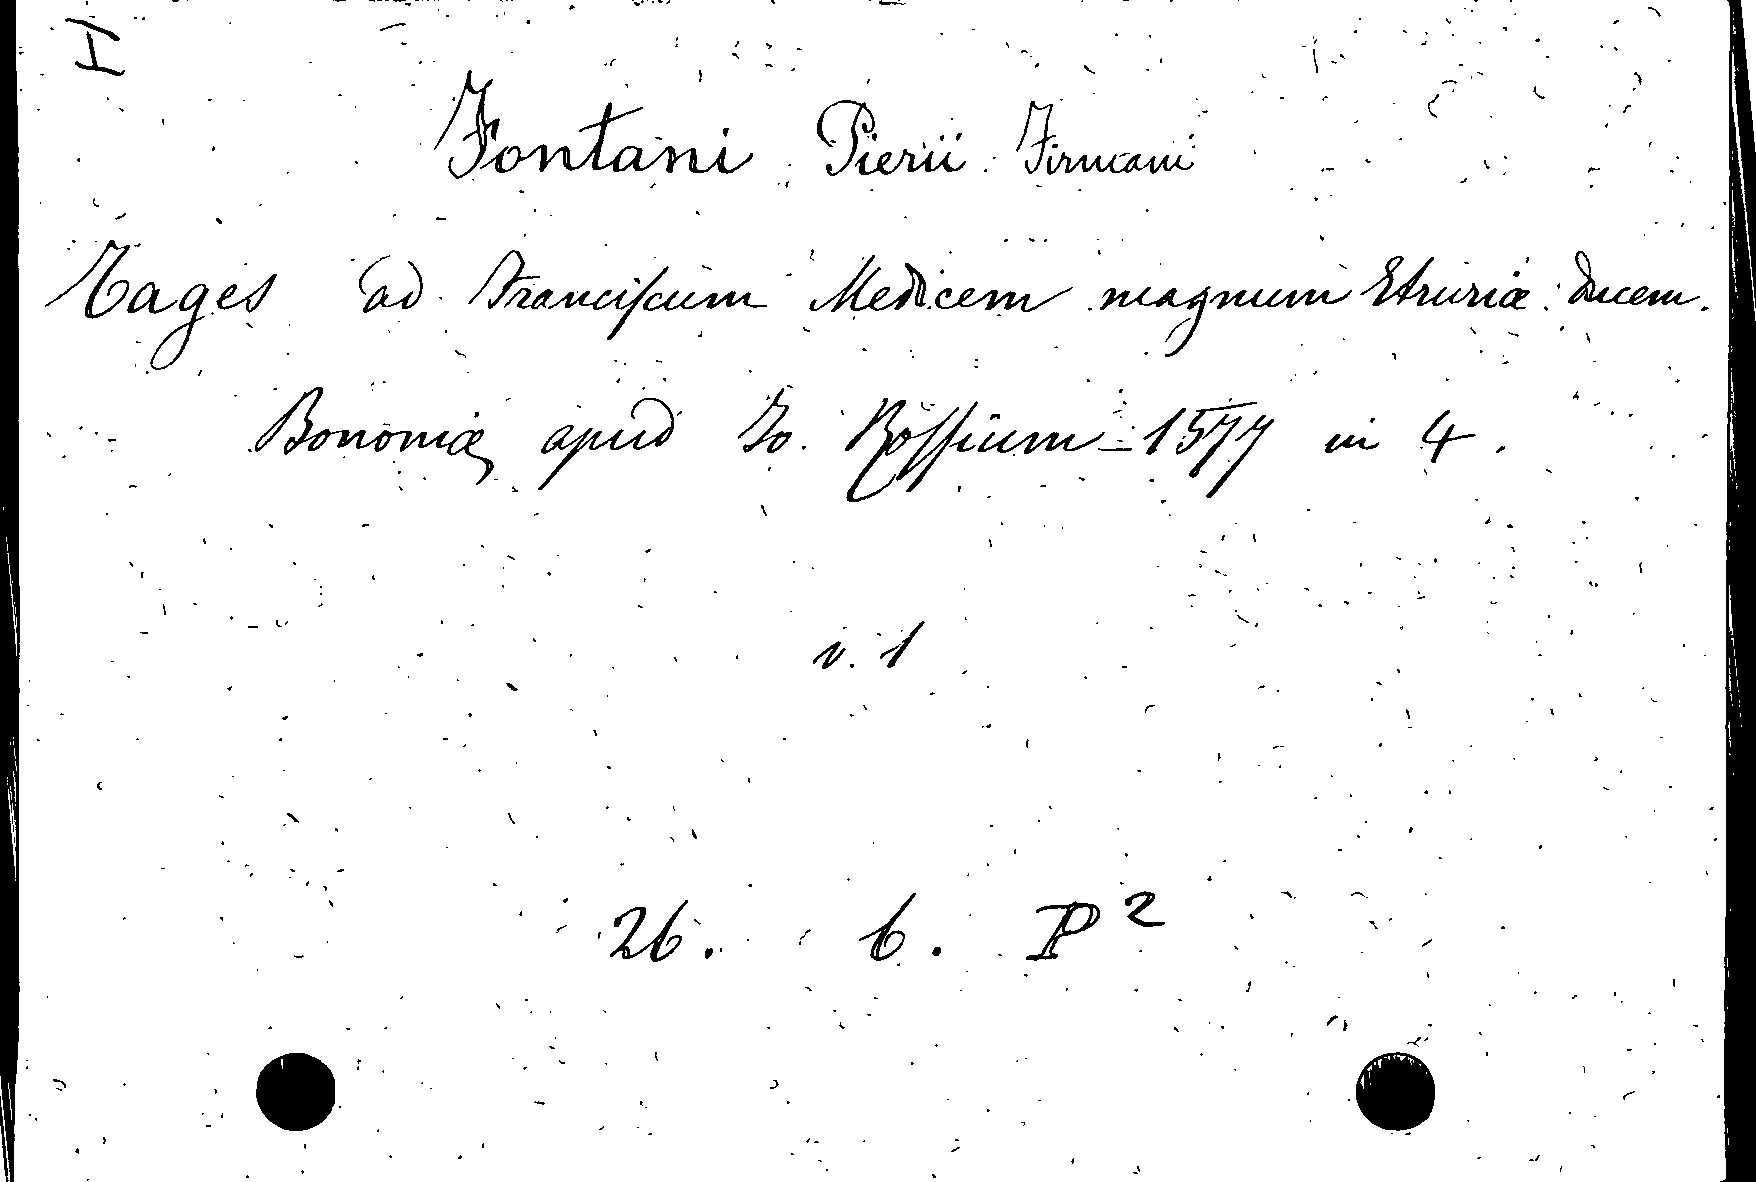 H
Fontani Pierii Firmani
Tages ad Franciscum Medicem magnum Etruriæ Ducem.
Bononiæ, apud Jo. Rossium - 1577 in 4.
v. 1
26. 6. P²